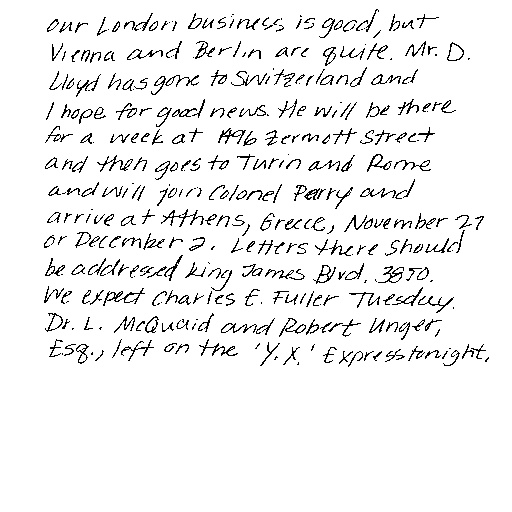 our London business is good, but
Vienna and Berlin are quite. Mr. D.
Lloyd has gone to Switzerland and
I hope for good news. He will be there
for a week at 1496 Zermott Street
and then goes to Turin and Rome
and will join Colonel Perry and
arrive at Athens, Greece, November 27
or December 2. Letters there should
be addressed King James Blvd. 3850.
We expect Charles E. Fuller Tuesday.
Dr. L. McQuaid and Robert Unger,
Esq., left on the 'Y.X.' Express tonight.